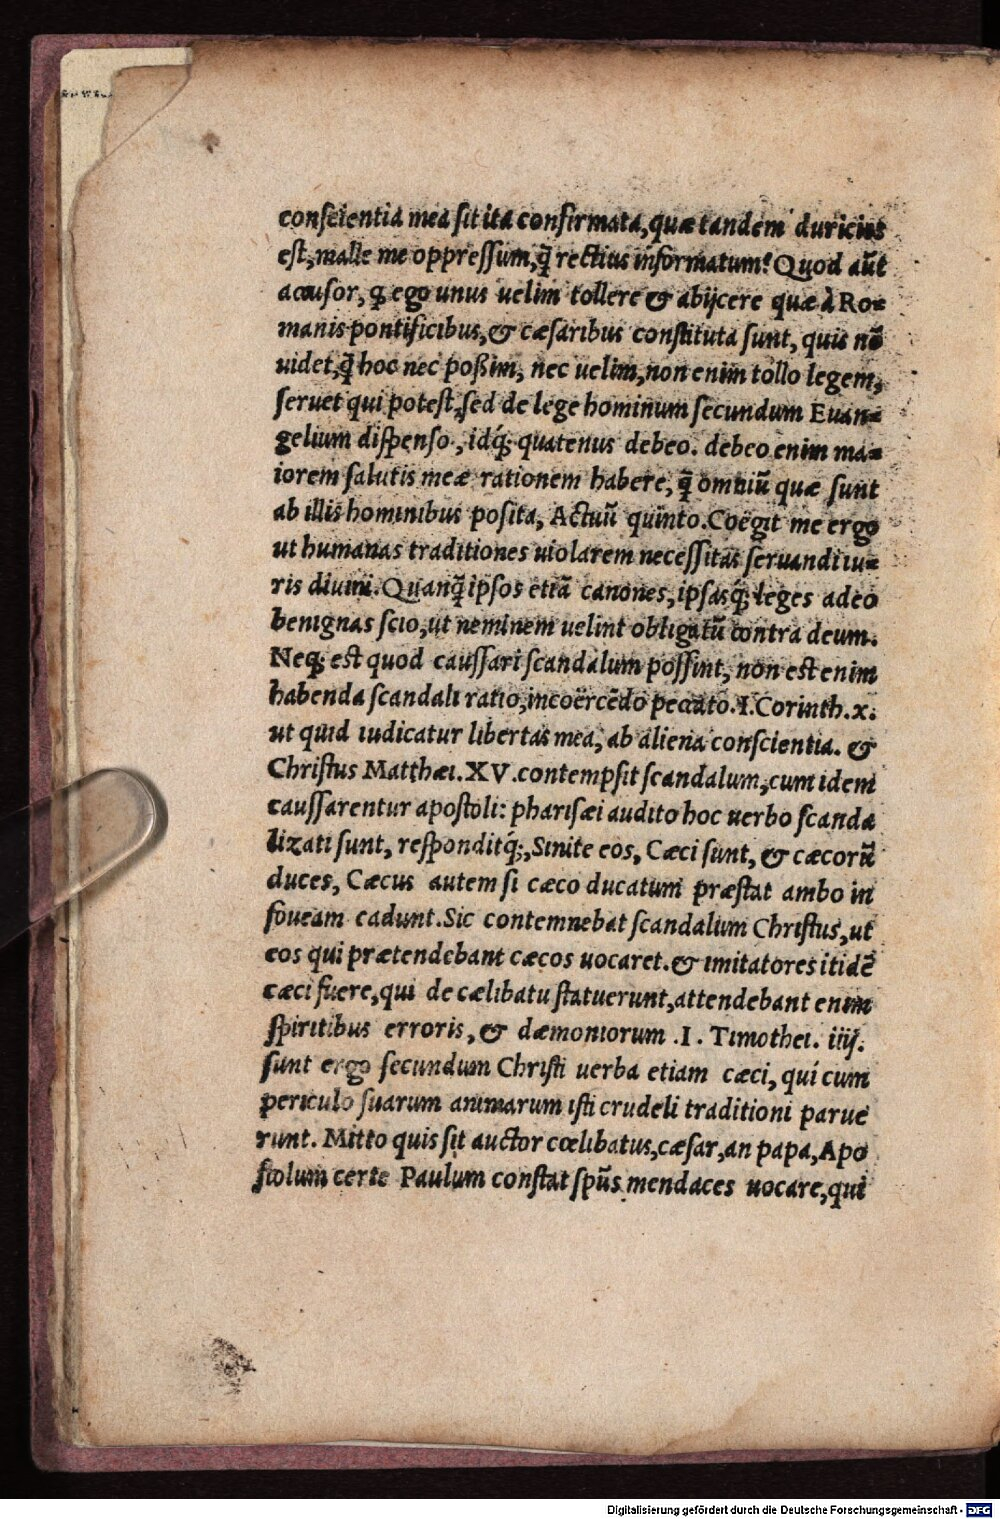 conscientia mea sit ita confirmata, quæ tandem duricies
est, malle me oppressum, q̃ rectius informatum? Quod aũt
accusor, ꝙ ego unus uelim tollere & abijcere quæ à Ro=
manis pontificibus, & cæsaribus constituta sunt, quis nō
uidet, q̃ hoc nec poßim, nec uelim, non enim tollo legem,
seruet qui potest, sed de lege hominum secundum Euan=
gelium dispenso, idq́; quatenus debeo. debeo enim ma=
iorem salutis meæ rationem habere, q̃ omniũ quæ sunt
ab illis hominibus posita, Actuũ quinto. Coëgit me ergo
ut humanas traditiones uiolarem necessitas seruandi iu=
ris diuini. Quanq̃ ipsos etiã canones, ipsasq́; leges adeo
benignas scio, ut neminem uelint obligatũ contra deum.
Neq; est quod caussari scandalum possint, non est enim
habenda scandali ratio, in coërcēdo peccato. I. Corinth. x.
ut quid iudicatur libertas mea, ab aliena conscientia. &
Christus Matthæi. XV. contempsit scandalum, cum idem
caussarentur apostoli: pharisæi audito hoc uerbo scanda
lizati sunt, responditq́;, Sinite eos, Cæci sunt, & cæcorũ
duces, Cæcus autem si cæco ducatum præstat ambo in
foueam cadunt. Sic contemnebat scandalum Christus, ut
eos qui prætendebant cæcos uocaret. & imitatores itidē
cæci fuere, qui de cælibatu statuerunt, attendebant enim
spiritibus erroris, & dæmoniorum .I. Timothei. iiij.
sunt ergo secundum Christi uerba etiam cæci, qui cum
periculo suarum animarum isti crudeli traditioni parue
runt. Mitto quis sit auctor cœlibatus, cæsar, an papa, Apo
stolum certe Paulum constat sp̃us mendaces uocare, qui
Digitalisierung gefördert durch die Deutsche Forschungsgemeinschaft - DFG